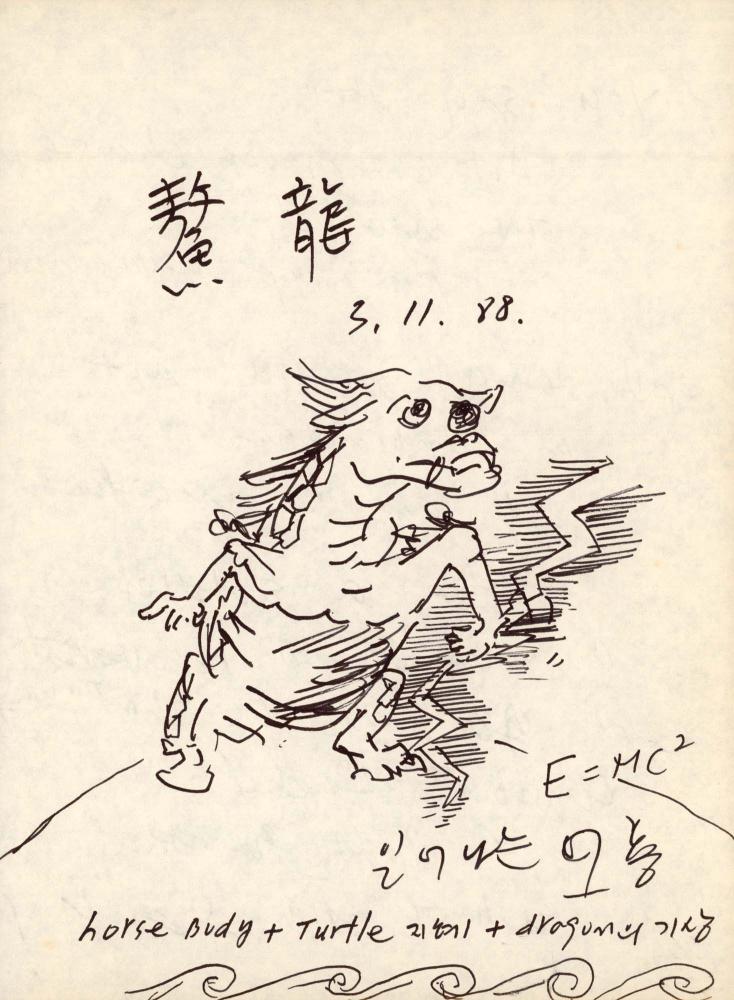 鰲 龍
3. 11. 88.
E=MC²
일어나는 오룡
horse Body + Turtle 지혜 + dragon의 기상